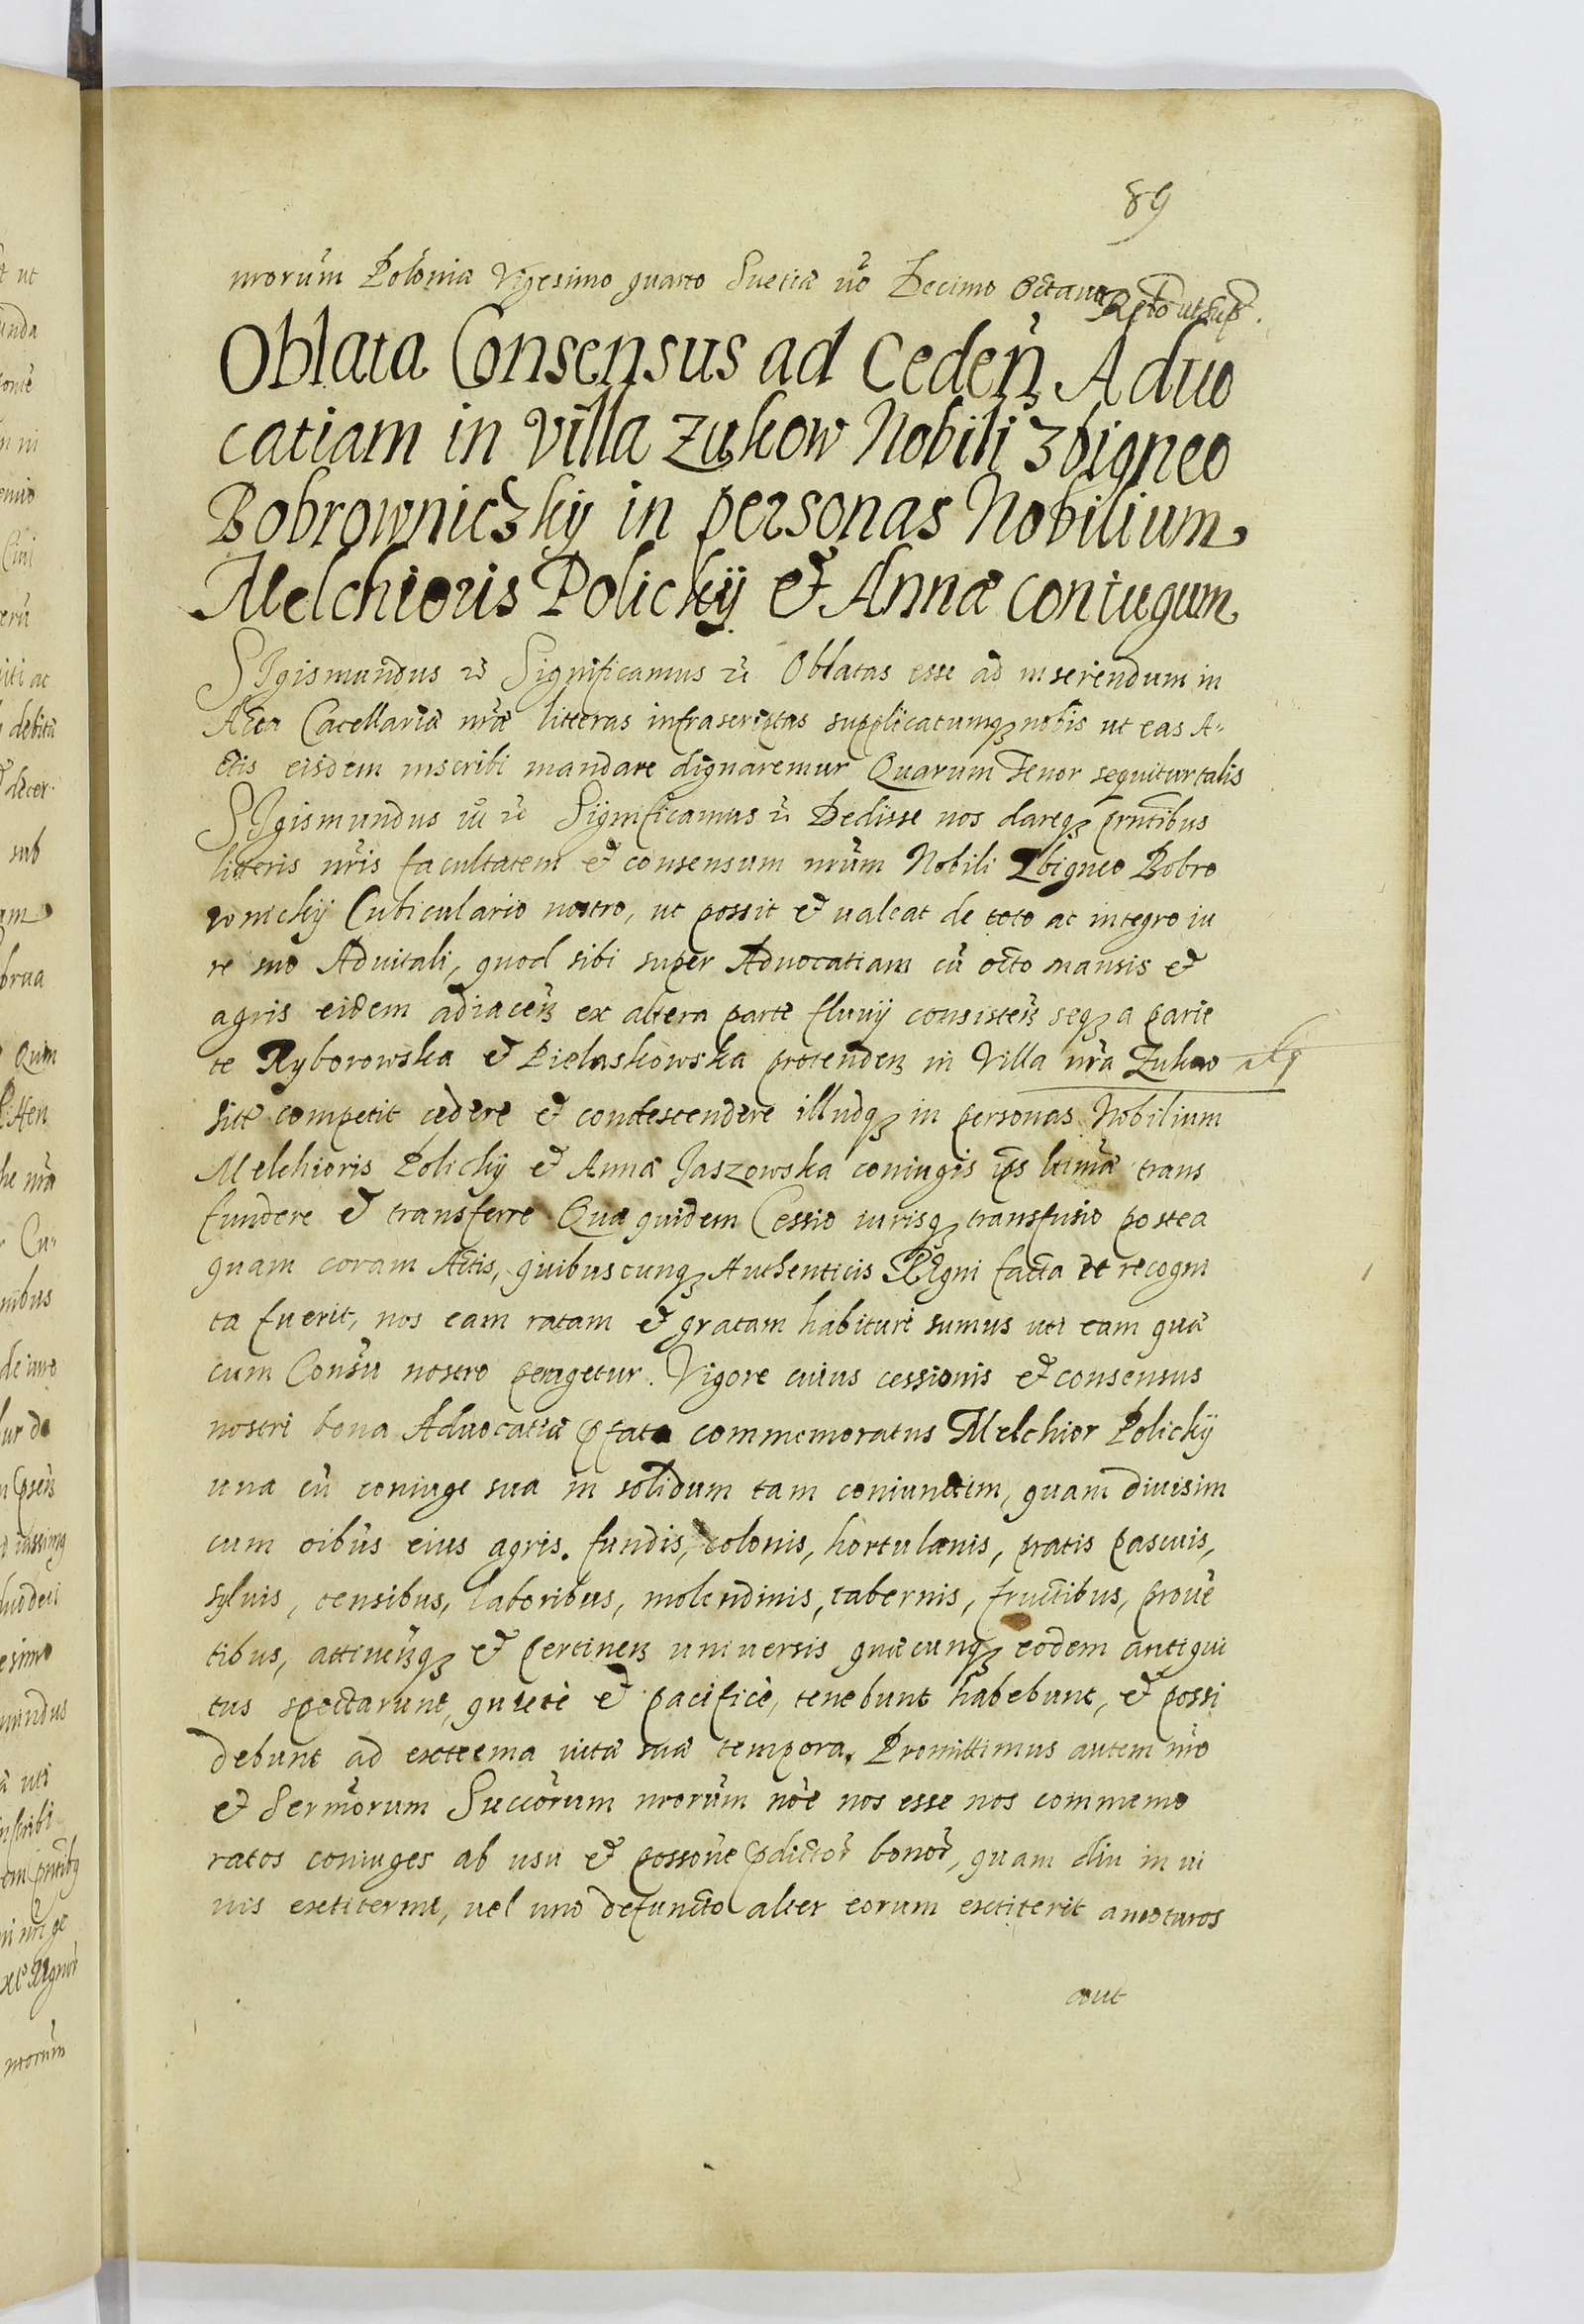 89
nrorum Poloniæ Vigesimo quarto Suetiæ vo Decimo Octavo Rnto ut sup.
Oblata Consensus ad Ceden Aduo
catiam in villa Zukow Nobili Zbigneo
Bobrowniczky in personas Nobilium
Melchioris Policky et Annæ coniugum
SIgismundus Significamus Oblatas esse ad inserendum in
Acta Cacellariæ nræ litteras infrascriptas supplicatumq nobis ut eas A-
ctis eisdem inscribi mandare dignaremur Quarum tenor sequitur talis
SIgismundus Significamus Dedisse nos dareq pntibus
litteris nris facultatem et consensum nrum Nobili Zbigneo Bobro
wnicky Cubiculario nostro, ut possit et ualeat de toto ac integro iu
re suo Aduitali, quod sibi super Aduocatiam cu octo mansis et
agris eidem adiacen ex altera parte fluuij consisten seq a parie
te Ryborowska et Pielaskowska protenden in Villa nra Zukow
site competit cedere et condescendere illudq in personas Nobilium
Melchioris Policky et Annæ Jaszowska coniugis ips ltimæ trans
fundere et transferre Quæ quidem Cessio iurisq transfusio postea
quam coram Actis, quibuscunq Authenticis REgni facta et recogni
ta fuerit, nos eam ratam et gratam habituri sumus uti eam quæ
cum Consu nostro peragetur. Vigore cuius cessionis et consensus
nostri bona Aduocatiæ pfata commemoratus Melchior Policky
una cu coniuge sua in solidum tam coniunctim, quam diuisim
cum oibus eius agris. fundis, colonis, hortulanis, pratis pascuis,
syluis, censibus, laboribus, molendinis, tabernis, fructibus, proue
tibus, attinenq et pertinen uniuersis quæcunq eodem antiqui
tus spectarunt, quiete et pacifice, tenebunt habebunt, et possi
debunt ad extrema uitæ suæ tempora. Promittimus autem nro
et Sermorum Succorum nrorum noe nos esse nos commemo
ratos coniuges ab usu et possone pdictor bonor, quam diu in ui
uis extiterint, uel uno defuncto alter eorum extiterit amoturos
aut